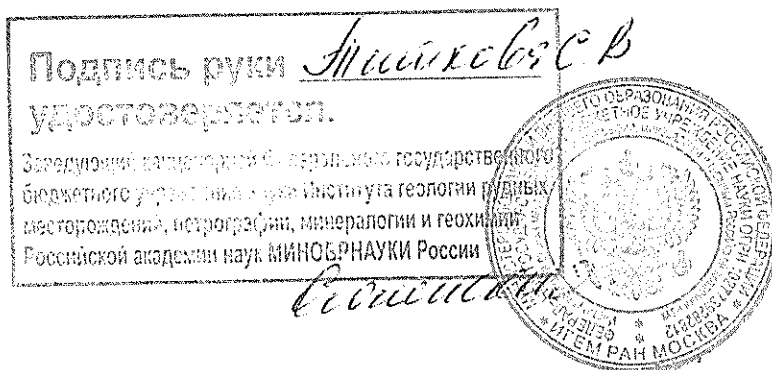 Подпись руки Титкова С В
удостоверяется.
Заведующий канцелярией Федерального государственного
бюджетного учреждения науки Института геологии рудных
месторождений, петрографии, минералогии и геохимии
Российской академии наук МИНОБРНАУКИ России
ВЫСШЕГО ОБРАЗОВАНИЯ РОССИЙСКОЙ ФЕДЕРАЦИИ
* ИГЕМ РАН МОСКВА *